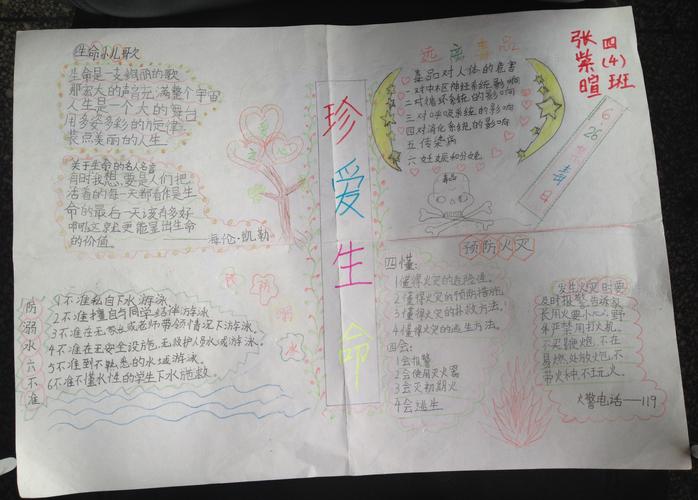 生命小儿歌
生命是一支绚丽的歌
那宏大的声音充满整个宇宙
人生是一个大的舞台
用多姿多彩的旋律
装点美丽的人生
关于生命的名人名言
有时我想,要是人们把
活着的每一天都看作是生
命的最后一天该有多好
啊!这就更能显出生命
的价值。
——海伦·凯勒
珍爱生命
远离毒品
毒品对人体的危害
一对中枢神经系统影响
二对循环系统的影响
三对呼吸系统的影响
四对消化系统的影响
五传染病
六妊娠和分娩
毒品
四(4)班
张紫暄
6.26禁毒日
防溺水
防溺水六不准
1不准私自下水游泳
2不准擅自与同学结伴游泳
3不准在无家长或老师带领情况下游泳。
4不准在无安全设施,无救护人员水域游泳。
5不准到不熟悉的水域游泳。
6不准不懂水性的学生下水施救
预防火灾
四懂:
1懂得火灾的危险性。
2懂得火灾的预防措施。
3懂得火灾的扑救方法。
4懂得火灾的逃生方法。
四会:
1会报警
2会使用灭火器
3会灭初期火
4会逃生
发生火灾时要
及时报警告诉家
长用火要小心,野
外严禁用打火机。
不买鞭炮,不在
易燃处放炮,不
带火种,不玩火。
火警电话——119